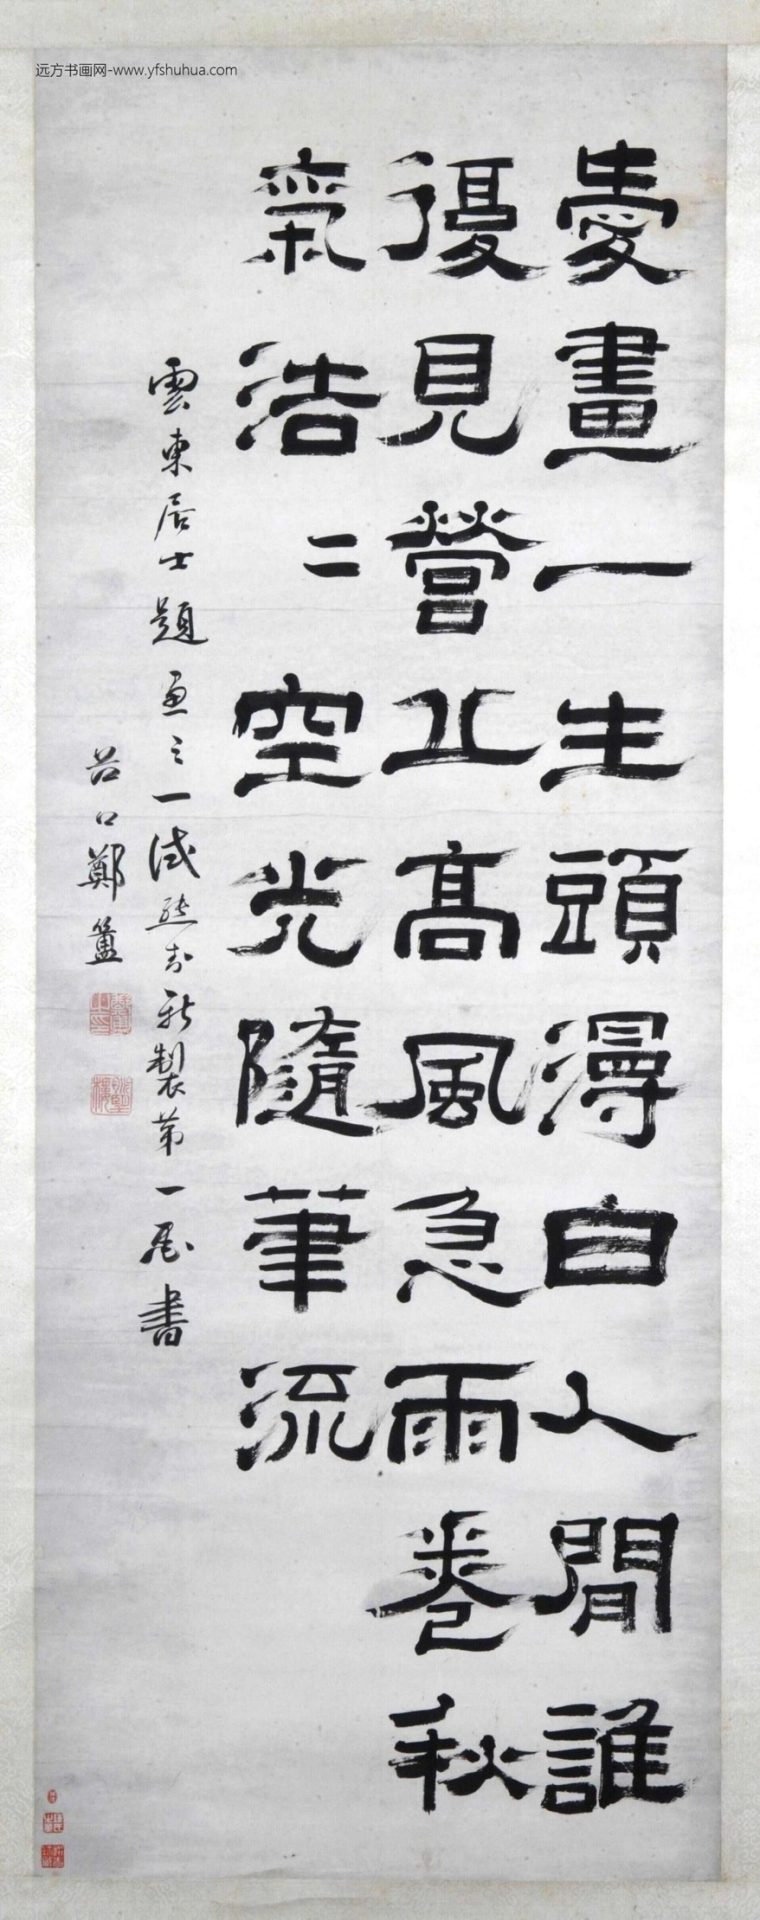 远方书画网-www.yfshuhua.com
愛畫一生頭漫白人間誰
復見營丘高風急雨卷秋
氣浩二空光隨筆流
雲東居士題畫之一試熊封新製第一墨書
谷口鄭簠